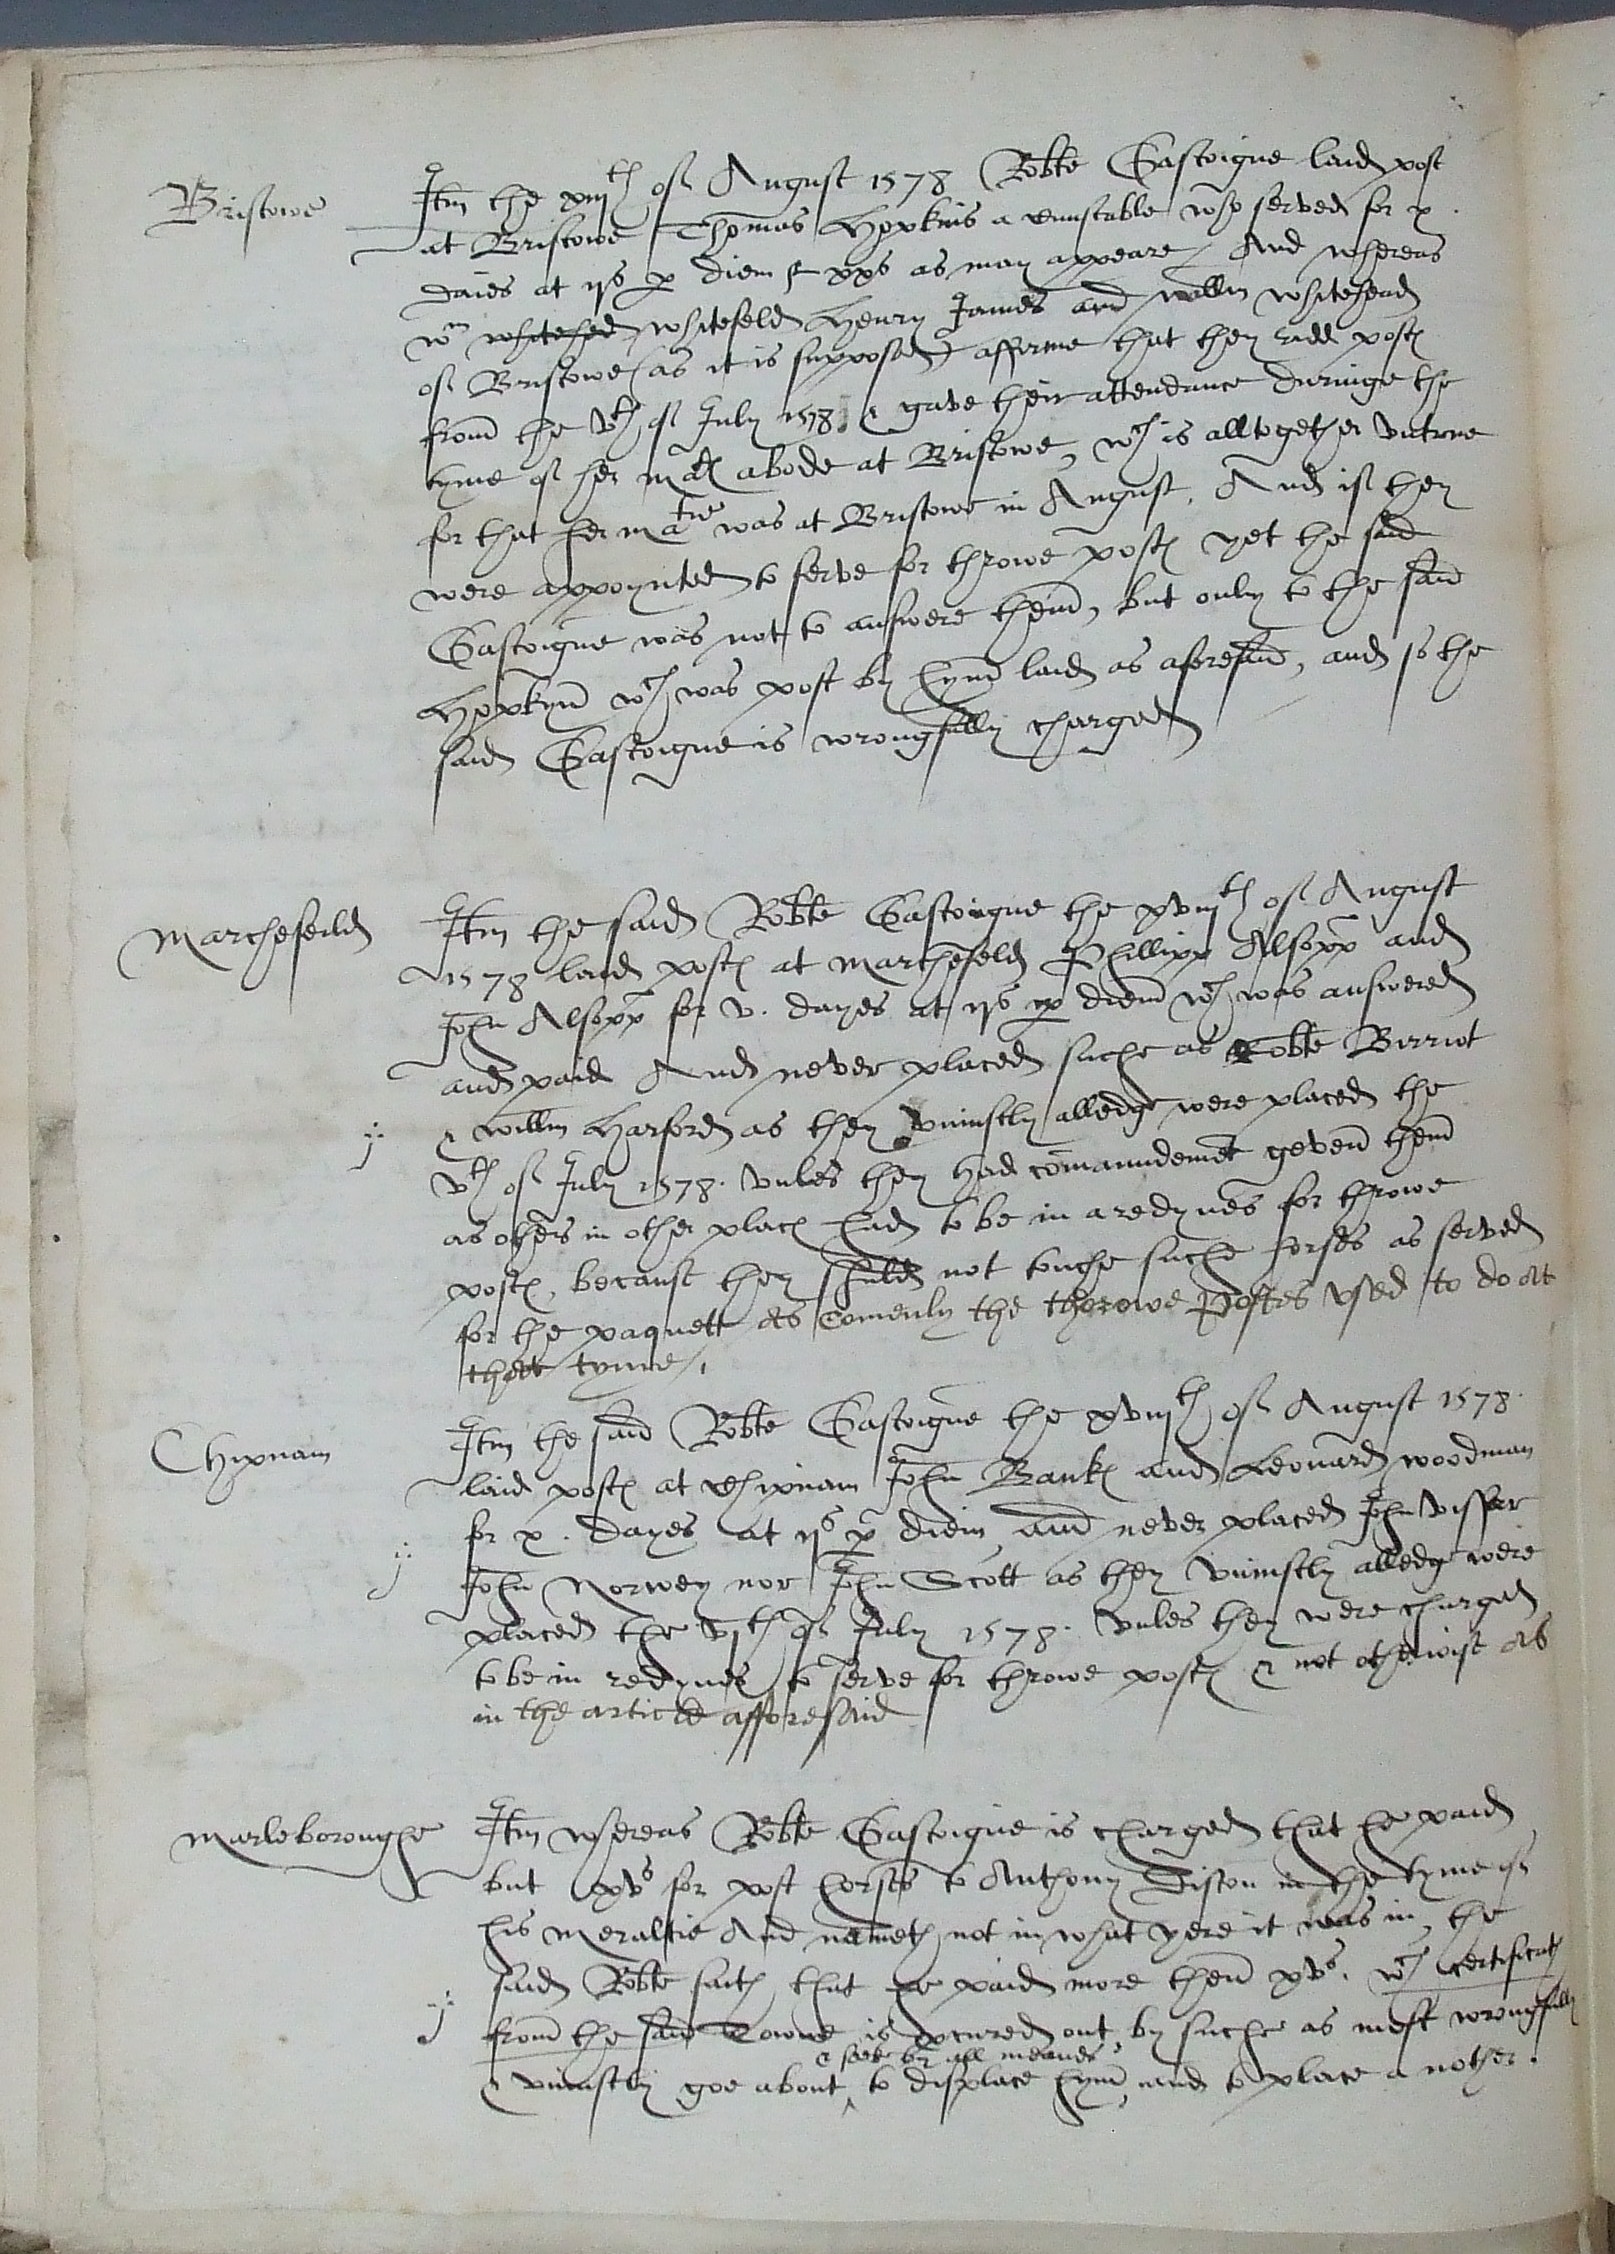 Bristowe
Itm the xiijth of August 1578 Robte Gascoigne laid post
at Bristowe Thomas Hopkins a cunstable who served for x
daies at ijs p diem & xxs as may appeare / And whereas
wm whitehed whitefeld Henry James and willm whitehead
of Bristowe (as it is supposed) afferme that they ridd post
from the vth of July 1578 & gave their attendance duringe the
tyme of her mats abode at Bristowe, wch is alltogether vntrue
for that her matie was at Bristowe in August, And if they
were appoynted to serve for throwe post yet the said
Gascoigne was not to answere them, but only to the said
Hopkyns wch was post by hym laid as aforesaid, and so the
said Gascoigne is wrongfully charged
Marchefeild
Itm the said Robte Gascoingne the xviijth of August
1578 laid post at Marchefeld Phillipp Alsopp and
John Alsopp for v. dayes at ijs p diem wch was answered
and paid And never placed suche as Robte Berriot
& willm Harford as they vniustly alledge were placed the
vth of July 1578. vnles they had comaundemet geven them
as others in other places had to be in a redynes for throwe
post, because they shuld not touche suche horses as served
for the paquett As comenly the thorowe Postes vsed to do At
thatt tyme /
Chipnam
Itm the said Robte Gascoigne the xviijth of August 1578
laid post at Chipnam John Banks and Leonard woodman
for x. dayes at ijs p diem and never placed John Vissar
John Norwey nor John Scott as they vniustly alledge were
placed the vjth of July 1578. vnles they were charged
to be in redynes to serve for throwe post & not otherwise As
in the article afforesaid
Marleboroughe
Itm whereas Robte Gascoigne is charged that he paid
but xvs for post horses to Anthony Diston in the tyme of
his Meraltie And nameth not in what yere it was in, the
said Robte saith that he paid more then xvs. wch certificath
from the said Towne is pcured out by suche as most wrongfully
& seeke by all meanes
& vniustly goe about to displace hym, and to place a nother.